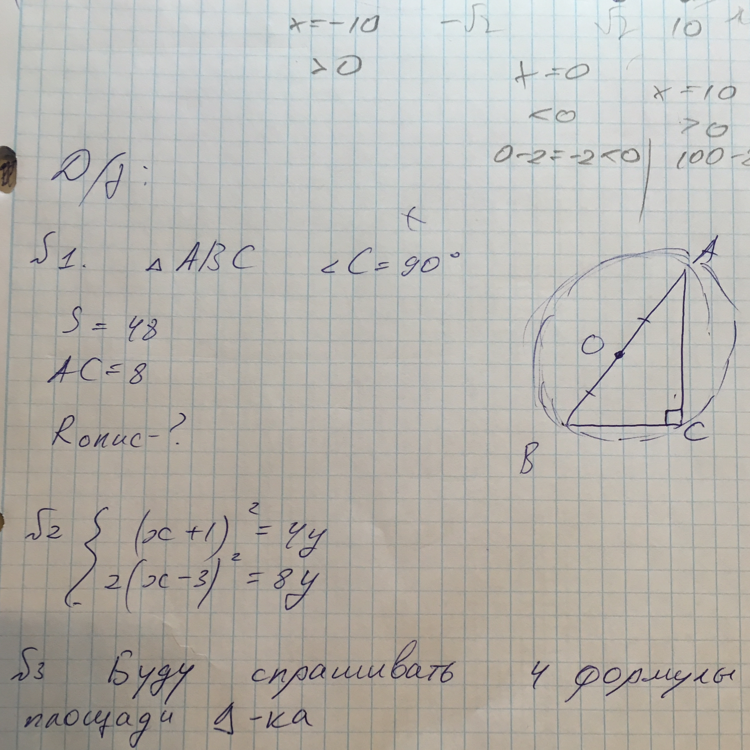 x=-10 -√2 √2 10
>0 x=0 x=10
<0 >0
0-2=-2<0 | 100-2
Д/з:
№1. △ABC ∠C=90°
S=48
AC=8
Rопис-?
A
O
B
C
№2 { (x+1)² = 4y
2(x-3)² = 8y
№3 Буду спрашивать 4 формулы
площади -ка